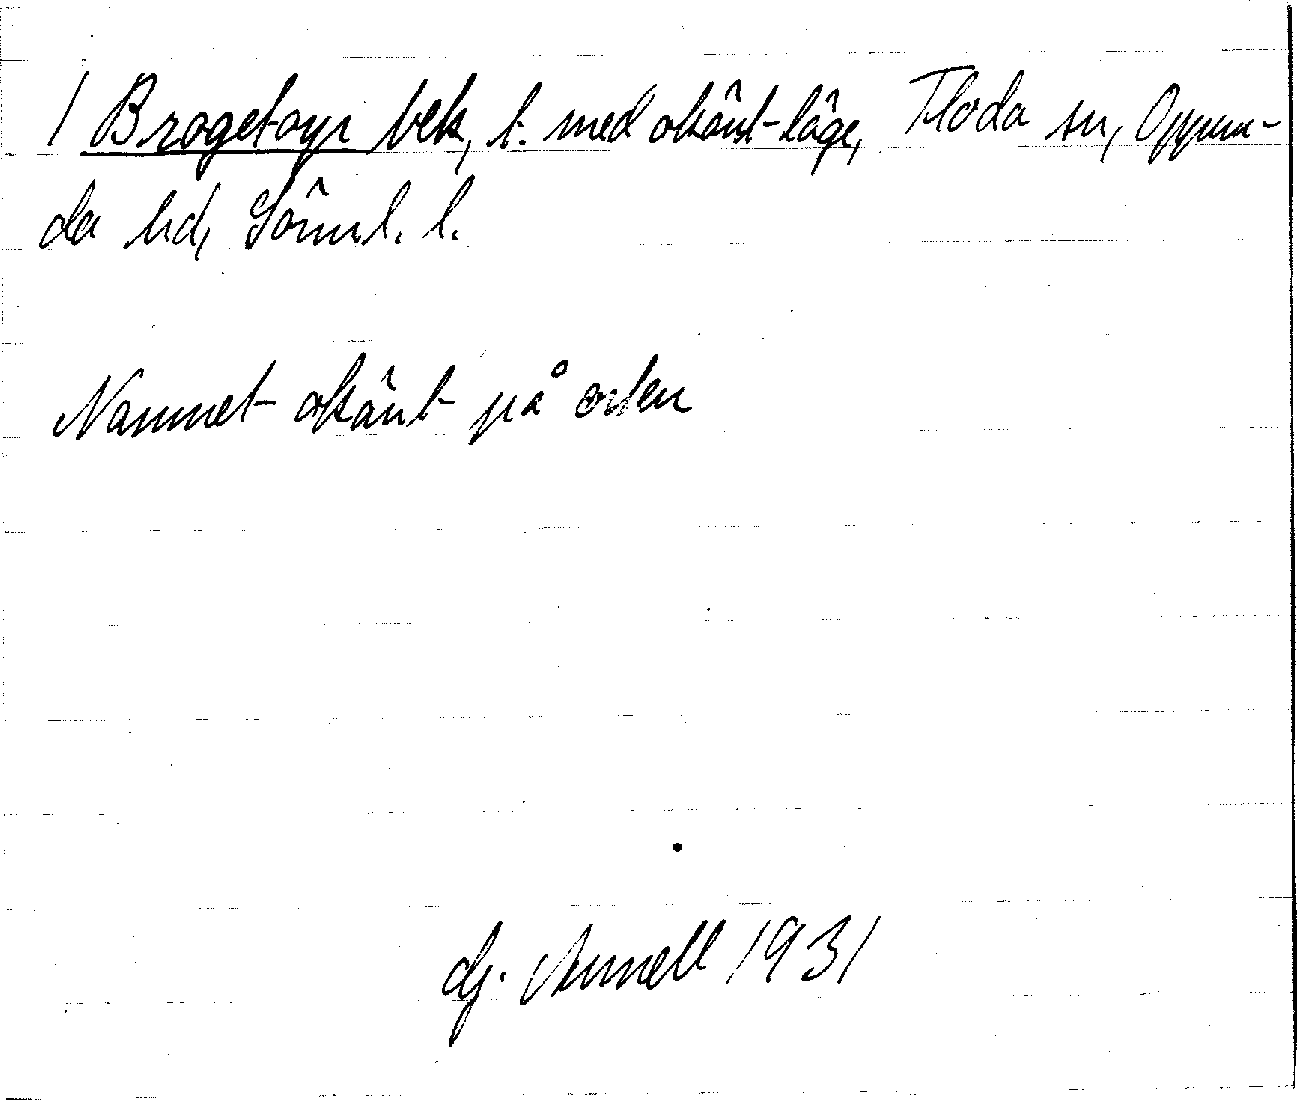 / Brogetorp bek, t. med okänt läge, Floda sn, Oppun-
da hd, Sörml. l.
Namnet okänt på orten
Annell 1931